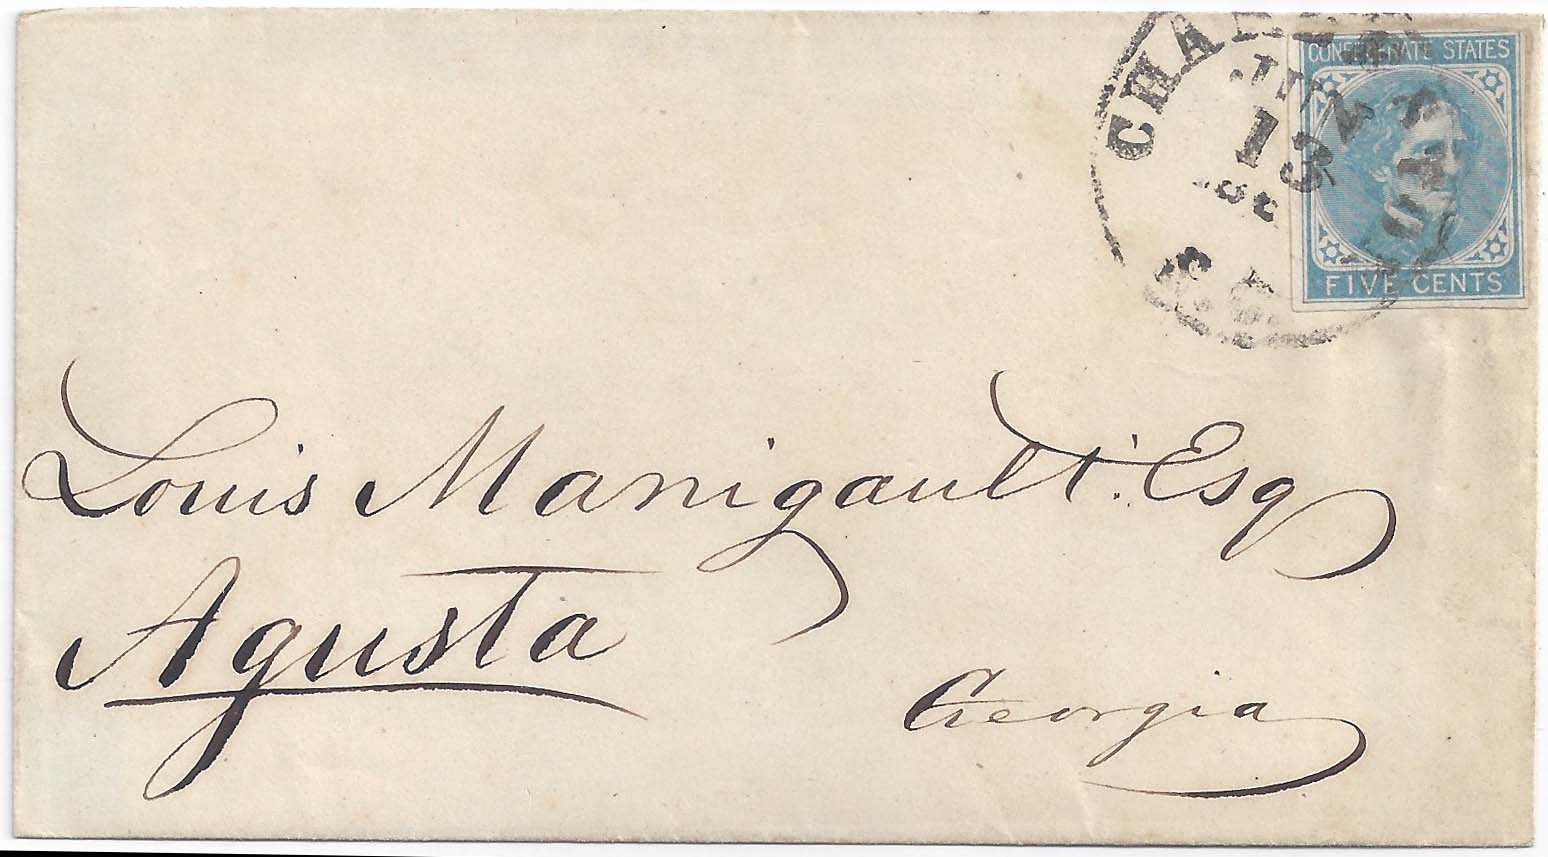 CONFEDERATE STATES
FIVE CENTS
13
Louis Manigault. Esq
Agusta
Georgia